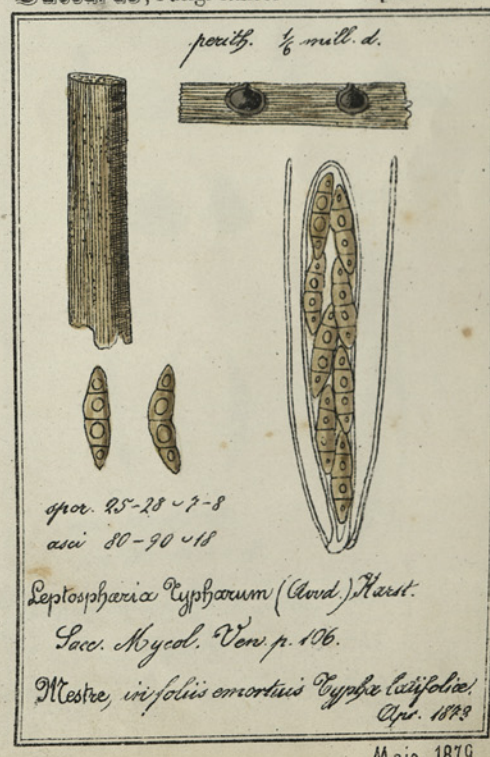 perith. 1/6 mill. d.
spor. 25-28 ⌣ 7-8
asci 80-90 ⌣ 18
Leptosphæria Typharum ( ) Karst.
Sacc. Mycol. Ven. p. 106.
Mestre, in foliis emortuis Typhæ latifoliæ.
Apr. 1873
Majo 1879